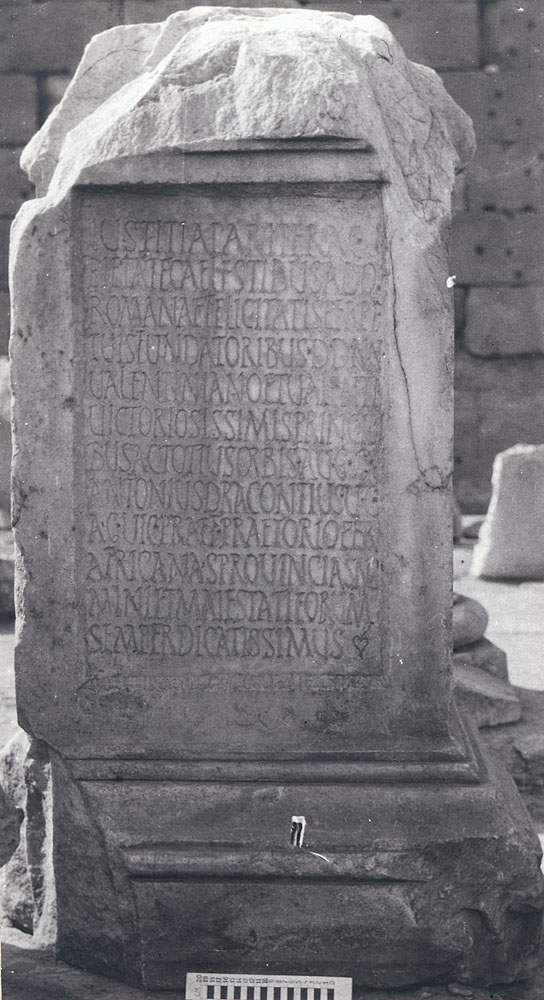 IUSTITIA PARITER AC
PIETATE CAELESTIBUS ADQ
ROMANAE FELICITATIS PERPE
TUIS FUNDATORIBUS DD NN
UALENTINIANO ET UALENTI
UICTORIOSISSIMIS PRINCIPI
BUS AC TOTIUS ORBIS AUGG
ANTONIUS DRACONTIUS UC
AG UICE PRAEF PRAETORIO PER
AFRICANAS PROUINCIAS NU
MINI ET MAIESTATI EORUM
SEMPER DICATISSIMUS
20 19 18 17 16 15 14 13 12 11 10 9 8 7 6 5 4 3 2 1 0